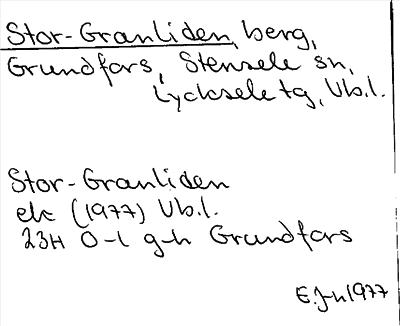 Stor-Granliden, berg,
Grundfors, Stensele sn,
Lycksele tg, Vb.l.
Stor-Granliden
ek (1977) Vb.l.
23H 0-1 g-h Grundfors
E.J-n 1977